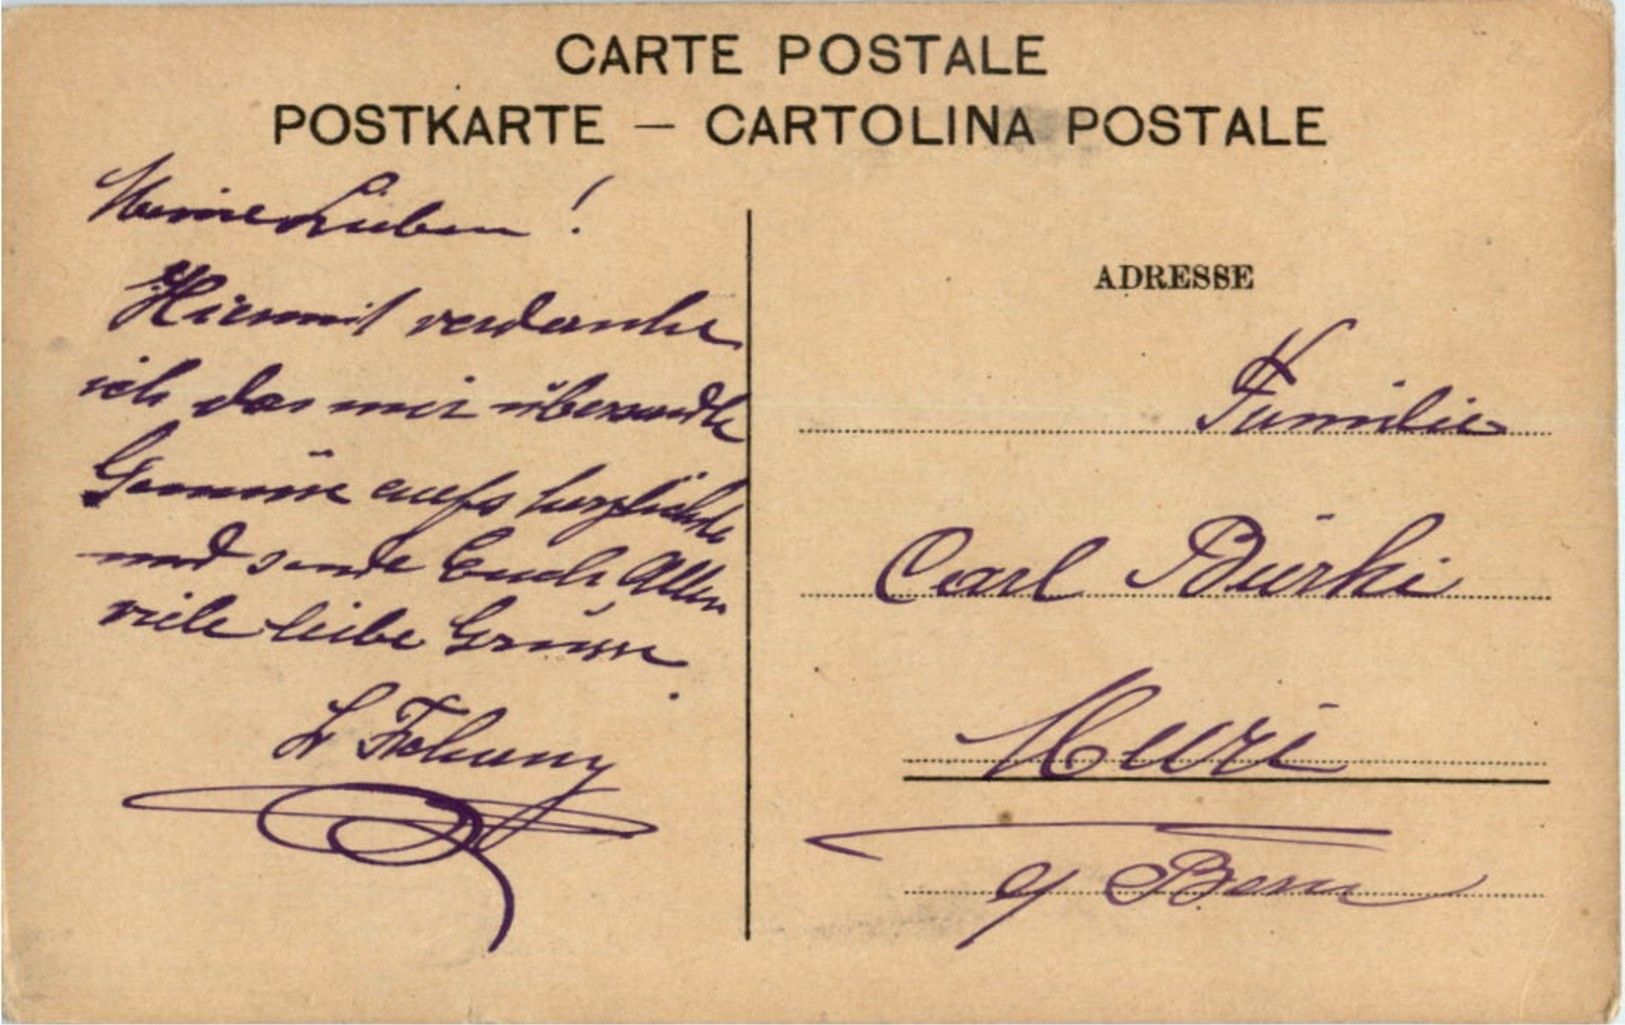 CARTE POSTALE
POSTKARTE — CARTOLINA POSTALE
Meine Lieben!
Hiermit verdanke
ich das mir übersandte
Gemüse aufs herzlichste
und sende Euch Allen
viele liebe Grüsse.
ADRESSE
Familie
Carl Bürki
Muri
b/ Bern